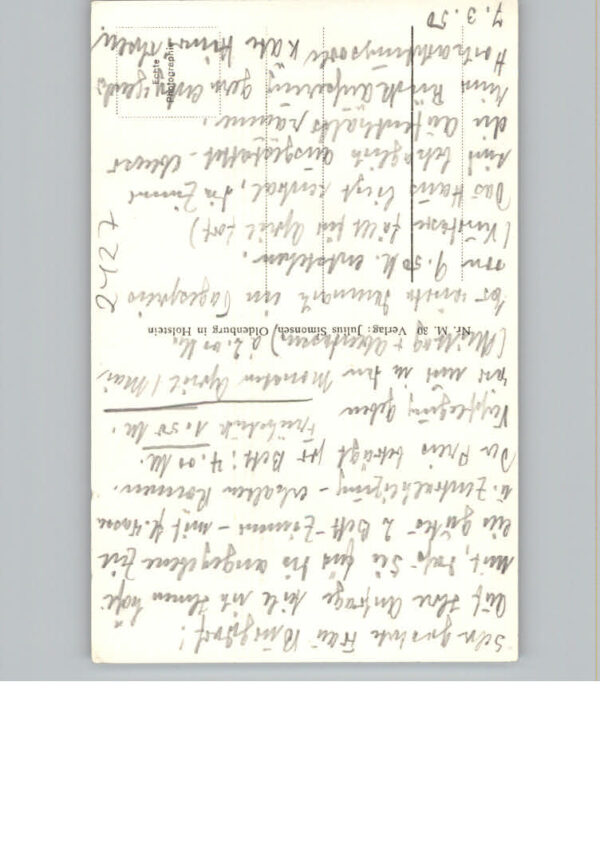 Sehr geehrte Frau
Auf Ihre Anfrage teile ich Ihnen höfl.
mit, daß Sie für die angegebene Zeit
ein gutes 2 Bett-Zimmer - mit fl. Wasser
u. Zentralheizung - erhalten können.
Der Preis beträgt pro Bett: 4.00 M.
Frühstück 1.50 M.
Verpflegung geben
wir nur in den Monaten April / Mai
(Mittag + Abendessen) à 2.00 M.
Nr. M. 30 Verlag: Julius Simonsen, Oldenburg in Holstein
so würde demnach ein Tagespreis
von 9.50 M. entstehen.
(Kurtaxe fällt im April fort)
Das Haus liegt zentral, die Zimmer
sind behaglich ausgestattet - ebenso
die Aufenthaltsräume.
Ihrer Rückäußerung gern
Hochachtungsvoll
7.3.50
2427
Echte
Photographie